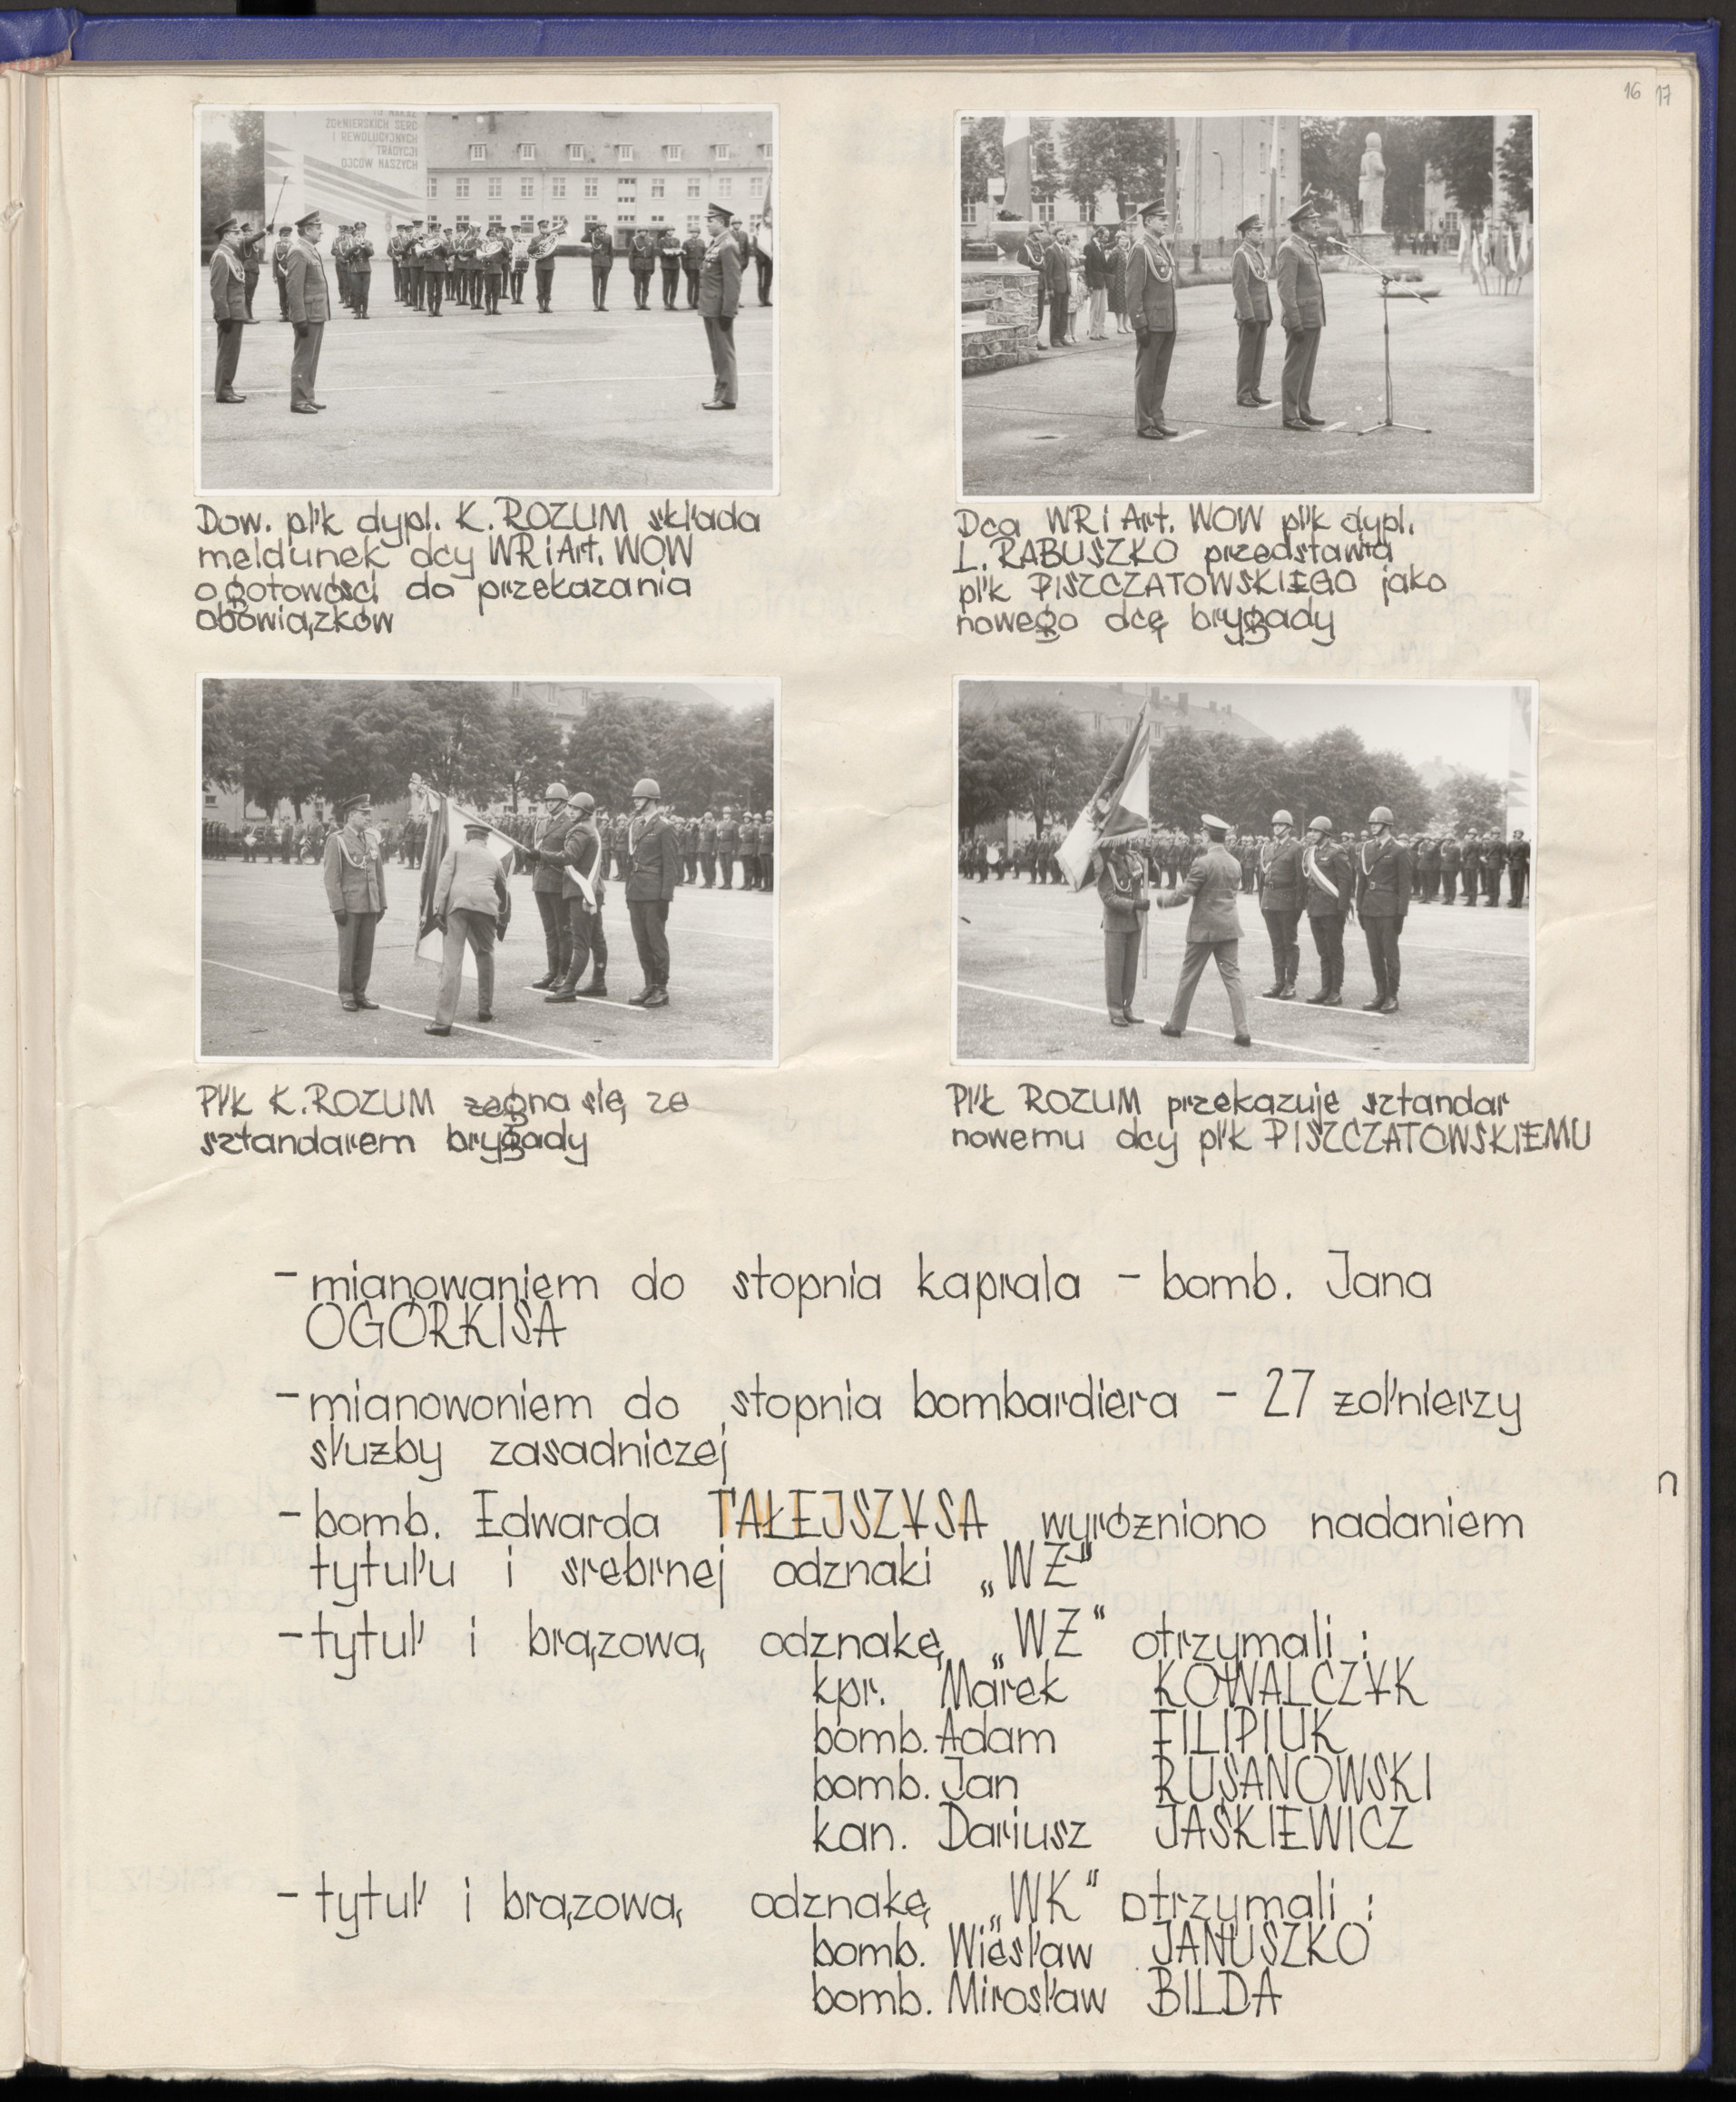 16 17
ŻOŁNIERSKICH SERC
I REWOLUCYJNYCH
TRADYCJI
OJCÓW NASZYCH
Dow. płk dypl. K. ROZUM składa
meldunek dcy WRiArt. WOW
o gotowości do przekazania
obowiązków
Dca WRiArt. WOW płk dypl.
L. RABUSZKO przedstawia
płk PISZCZATOWSKIEGO jako
nowego dcę brygady
Płk K. ROZUM żegna się ze
sztandarem brygady
Płk ROZUM przekazuje sztandar
nowemu dcy płk PISZCZATOWSKIEMU
- mianowaniem do stopnia kaprala - bomb. Jana
OGÓRKISA
- mianowoniem do stopnia bombardiera - 27 żołnierzy
służby zasadniczej
- bomb. Edwarda TAŁEJSZYSA wyróżniono nadaniem
tytułu i srebrnej odznaki „WŻ"
- tytuł i brązową odznakę „WŻ" otrzymali :
kpr. Marek KOWALCZYK
bomb. Adam FILIPIUK
bomb. Jan RUSANOWSKI
kan. Dariusz JAŚKIEWICZ
- tytuł i brązową odznakę „WK" otrzymali :
bomb. Wiesław JANUSZKO
bomb. Mirosław BILDA